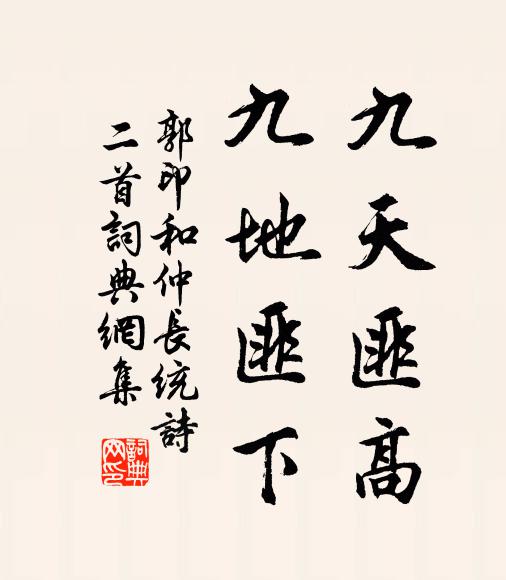 九天匪高
九地匪下
郭印和仲長統詩
二首詞典網集
詞典網印